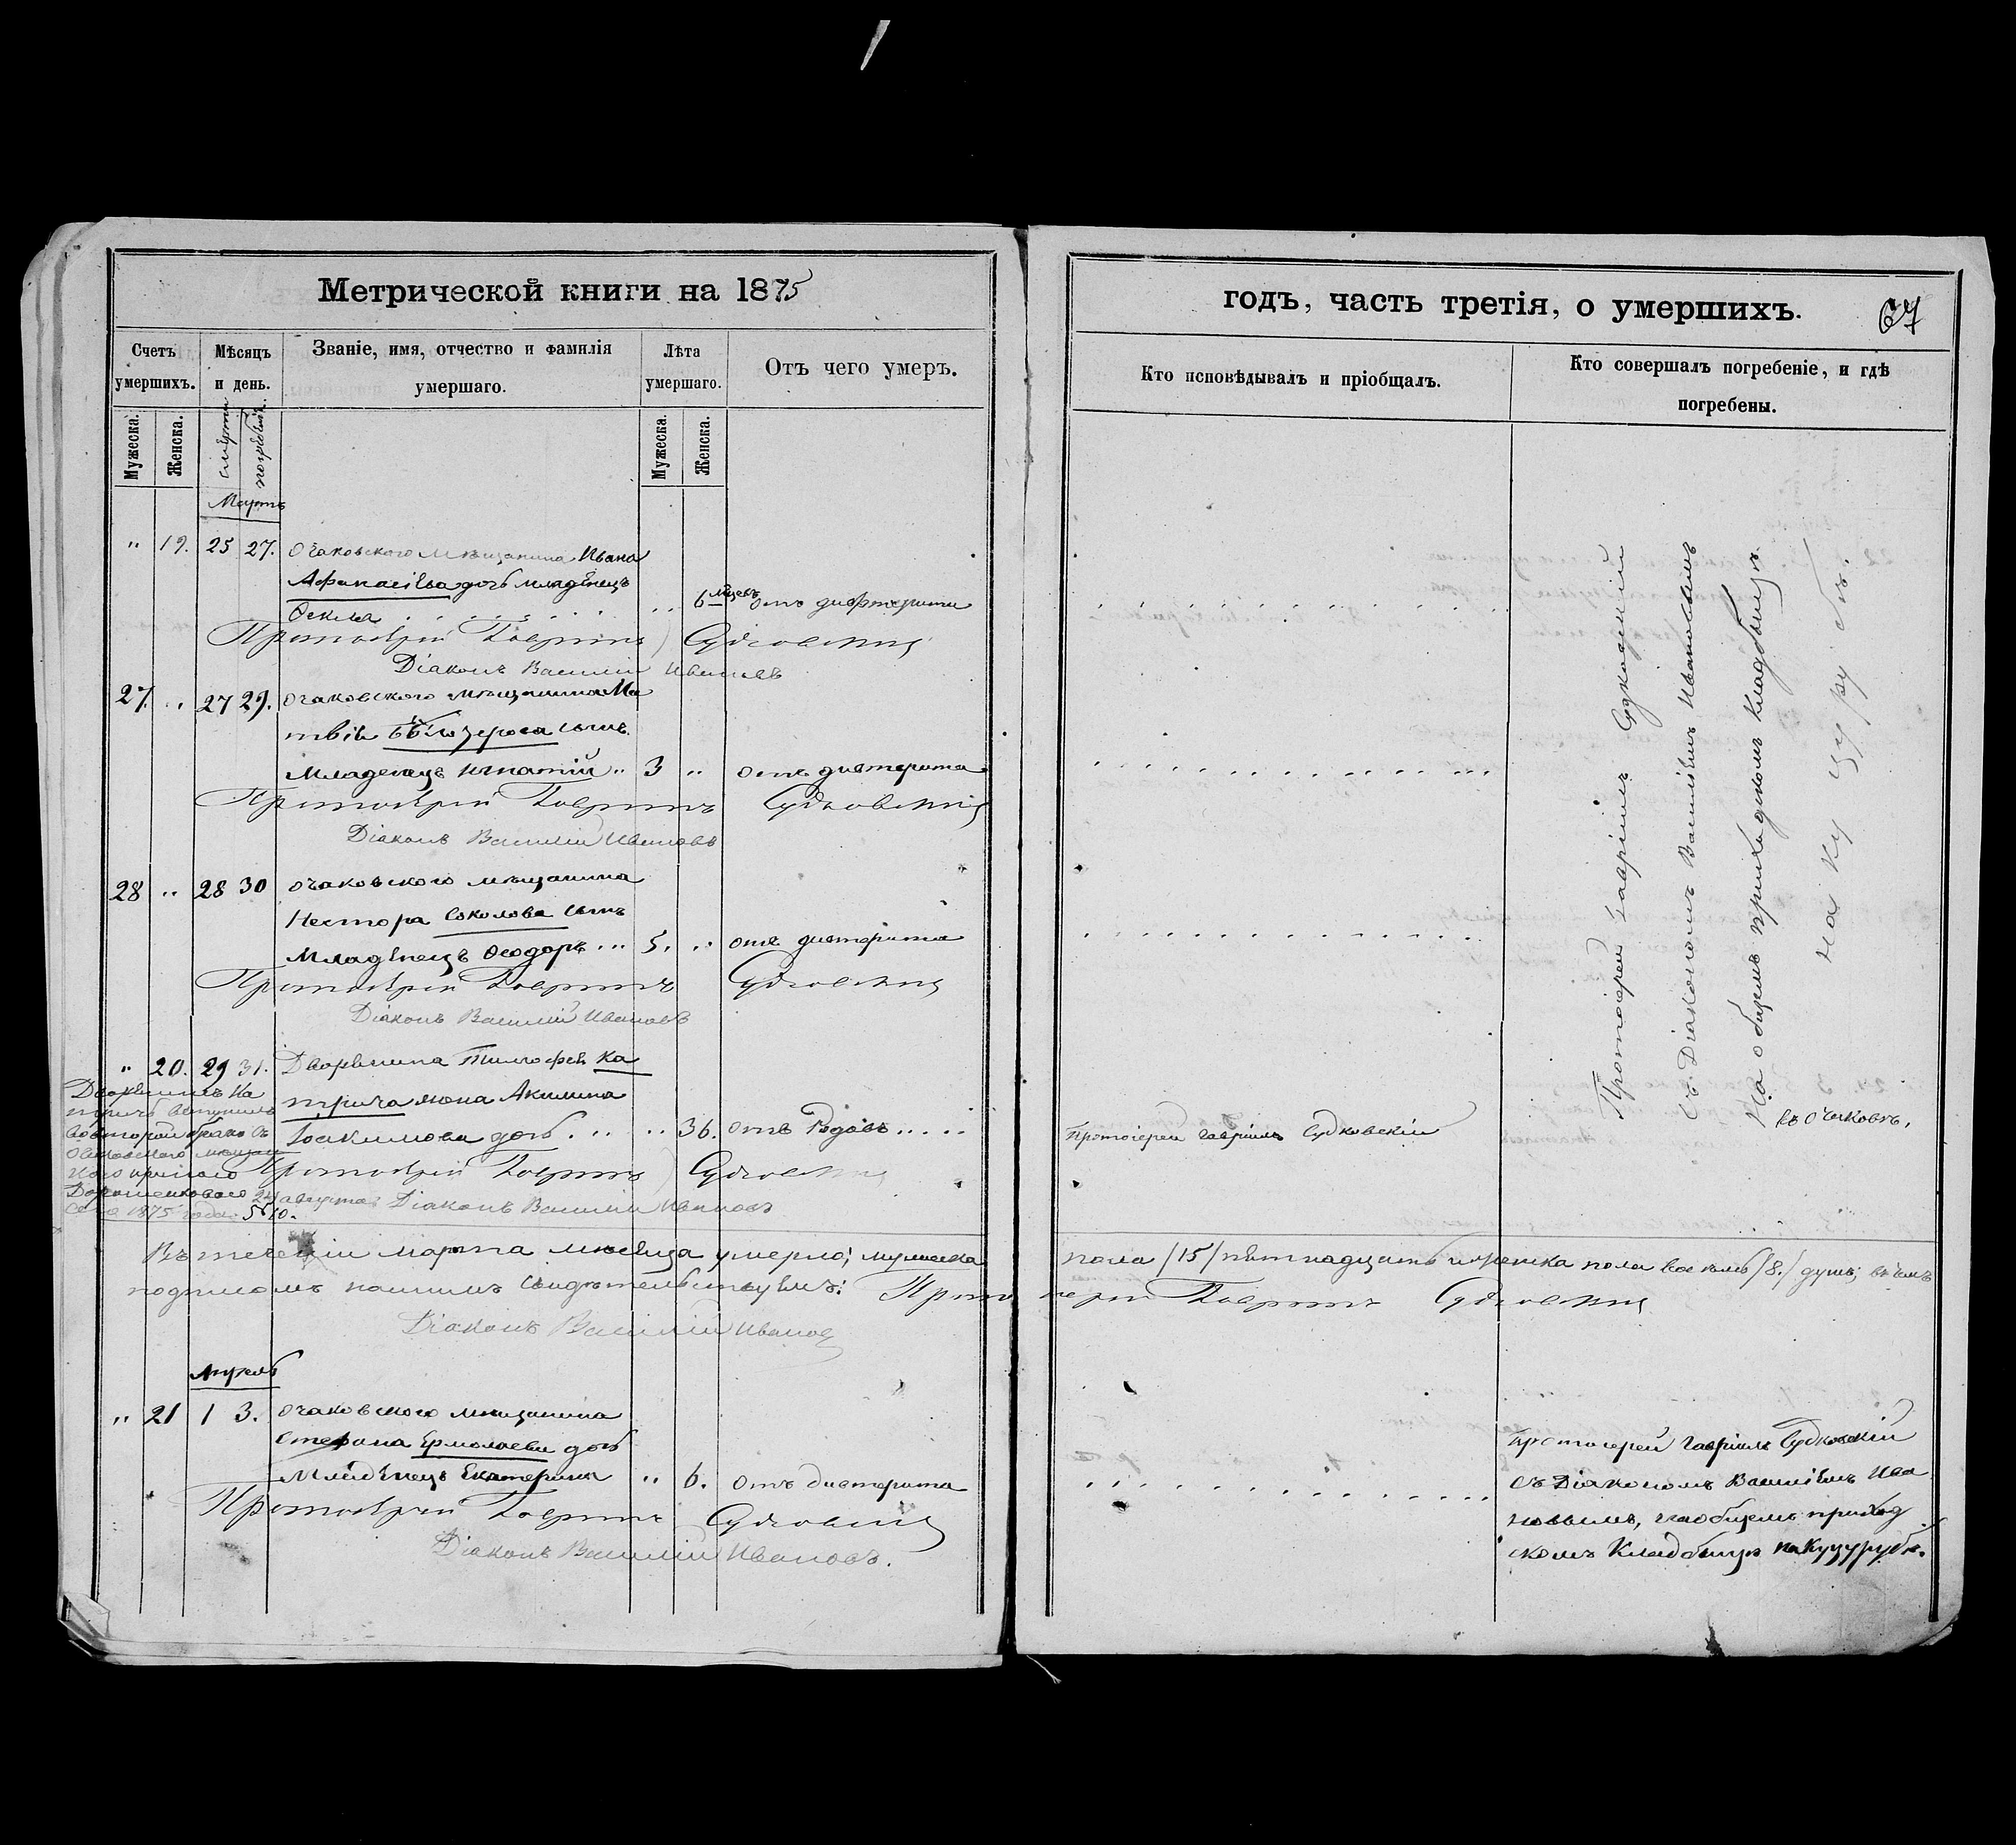 Метрической книги на 1875
годъ, часть третія, о умершихъ.
67
Счетъ умершихъ.
Мѣсяцъ и день.
Званіе, имя, отчество и фамилія умершаго.
Лѣта умершаго.
Отъ чего умеръ.
Кто исповѣдывалъ и пріобщалъ.
Кто совершалъ погребеніе, и гдѣ погребены.
Мужеска.
Женска.
смерти
погребенія.
Мужеска.
Женска.
Мартъ
" 19. 25 27. Очаковского мѣщанина Ивана
Афанасіева дочь младенецъ
Ѳекла 6 мѣсяц. отъ дифтерити
Протоіерей Гавріилъ Судковскій
Діаконъ Василій Ивановъ
27. " 27 29. Очаковского мѣщанина Ма
твія Бѣлозерова сынъ
Младенецъ Игнатій " 3 " отъ дифтерита
Протоіерей Гавріилъ Судковскій
Діаконъ Василій Ивановъ
28 " 28 30 Очаковского мѣщанина
Нестора Соколова сынъ
Младенецъ Ѳеодоръ 5. " отъ дифтерита
Протоіерей Гавріилъ Судковскій
Діаконъ Василій Ивановъ
" 20. 29 31. Дворянина Тимофея Ка
трича жена Акилина
Іоакимова дочь 36. отъ Родовъ
Протоіерей Гавріилъ Судковскій
Дворянинъ Ка
тричъ вступилъ
во второй бракъ съ
Очаковского мѣщан
24 августа
сего 1875 года. № 10.
Протоіерей Гавріилъ Судковскій
Діаконъ Василій Ивановъ
Протоіерей Гавріилъ Судковскій
съ Діакономъ Василіемъ Ивановымъ
На общемъ приходскомъ кладбищѣ
на Куцурубѣ.
въ Очаковѣ.
Въ теченіи марта мѣсяца умерло; мужеска пола /15/ пятнадцать и женска пола восемь /8./ душъ; въ чемъ
подписомъ нашимъ свидѣтельствуемъ: Протоіерей Гавріилъ Судковскій
Діаконъ Василій Ивановъ
Апрель
" 21 1 3. Очаковского мѣщанина
Стефана Ермолаева дочь
Младенецъ Екатерина " 6. отъ дифтерита
Протоіерей Гавріилъ Судковскій
Діаконъ Василій Ивановъ.
Протоіерей Гавріилъ Судковскій
съ Діакономъ Василіемъ Ива
новымъ, на общемъ приход
скомъ Кладбищѣ на Куцурубѣ.